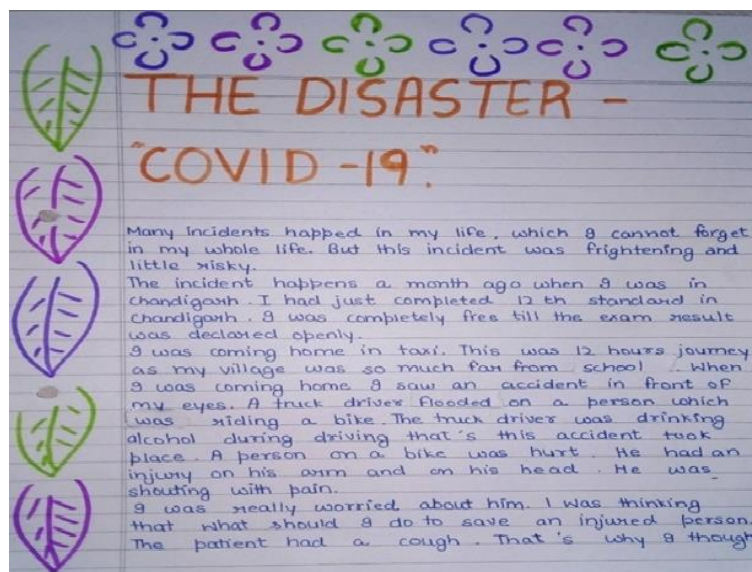 THE DISASTER -
"COVID -19".
Many incidents happed in my life, which I cannot forget
in my whole life. But this incident was frightening and
little risky.
The incident happens a month ago when I was in
chandigarh. I had just completed 12 th standard in
chandigarh. I was completely free till the exam result
was declared openly.
I was coming home in taxi. This was 12 hours journey
as my village was so much far from school. When
I was coming home I saw an accident in front of
my eyes. A truck driver flooded on a person which
was riding a bike. The truck driver was drinking
alcohol during driving that's this accident took
place. A person on a bike was hurt. He had an
injury on his arm and on his head. He was
shouting with pain.
I was really worried about him. I was thinking
that what should I do to save an injured person.
The patient had a cough. That's why I though